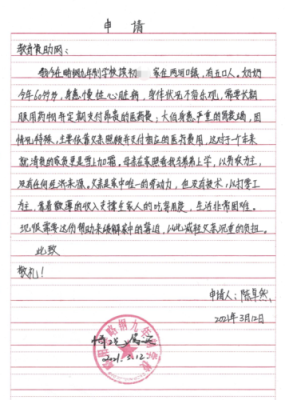 申 请
教育资助网:
我今在略钢九年制学校读初 家住两河口镇,有五口人。奶奶
今年60多岁,身患慢性心脏病,身体状况不容乐观,需要长期
服用药物并定期支付昂贵的医药费;大伯身患严重的 ,因
情况特殊,主要依靠父亲照顾并支付相应的医药费用,这对于一个本来
就清贫的家庭更是雪上加霜。母亲在家照看我与弟弟上学,以务农为主,
没有任何经济来源,父亲是家中唯一的劳动力,但没有技术,以打零工
为主,靠着微薄的收入支撑全家人的吃穿用度,生活非常困难。
现很需要这份帮助来缓解家中的窘迫,以此减轻父亲沉重的负担。
此致
敬礼!
申请人:陈卓然
2021年3月12日
情况属实
2021.3.12
略钢九年制学校